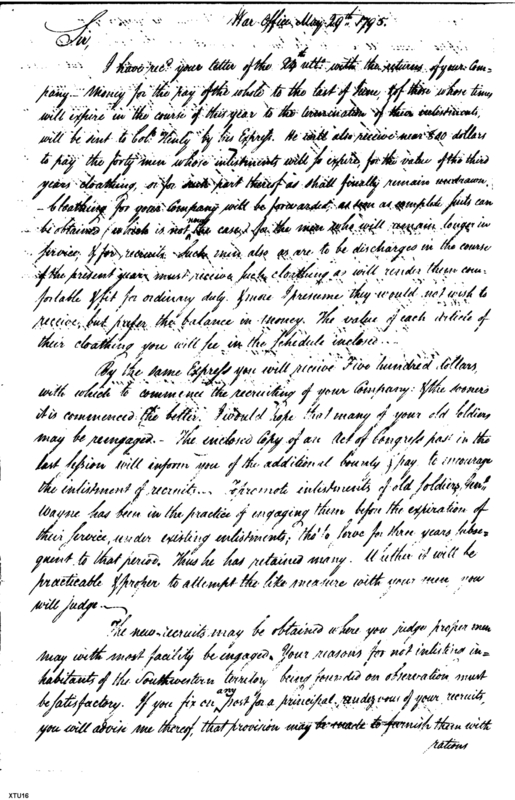 War Office May 29th 1795.
Sir,
I have recd. your letter of the 24th ulto. with the returns of your Com-
pany. Money for the pay of the whole to the last of June & of those whose times
will expire in the course of this year to the termination of their inlistments,
will be sent to Colo. Henly by the Express. He will also receive near 800 dollars
to pay the forty men whose inlistments will so expire, for the value of the third
years cloathing, or for such part thereof as shall finally remain undrawn.
– Cloathing for your Company will be forwarded as soon as complete suits can
be obtained (which is not now the case) for the men who will remain longer in
service, & for recruits. Such men also as are to be discharged in the course
of the present year must receive such cloathing as will render them com-
fortable & fit for ordinary duty. & more I presume they would not wish to
receive, but prefer the balance in money. The value of each article of
their cloathing you will see in the Schedule inclosed.
By the same Express you will receive Five hundred dollars,
with which to commence the recruiting of your Company: & the sooner
it is commenced the better. I would hope that many of your old Soldiers
may be reengaged. – The enclosed Copy of an Act of Congress pass'd in the
last Session will inform you of the additional bounty & pay to encourage
the enlistment of recruits. To promote inlistments of old Soldiers, Genl.
Wayne has been in the practice of engaging them before the expiration of
their Service, under existing enlistments; tho' to serve for three years subse-
quent to that period. Thus he has retained many. Whether it will be
practicable & proper to attempt the like measure with your men you
will judge.
The new recruits may be obtained where you judge proper men
may with most facility be engaged. Your reasons for not inlisting in-
habitants of the Southwestern territory being founded on observation must
be satisfactory. If you fix on any post for a principal rendezvous of your recruits,
you will advise me thereof, that provision may be made to furnish them with
rations
XTU16